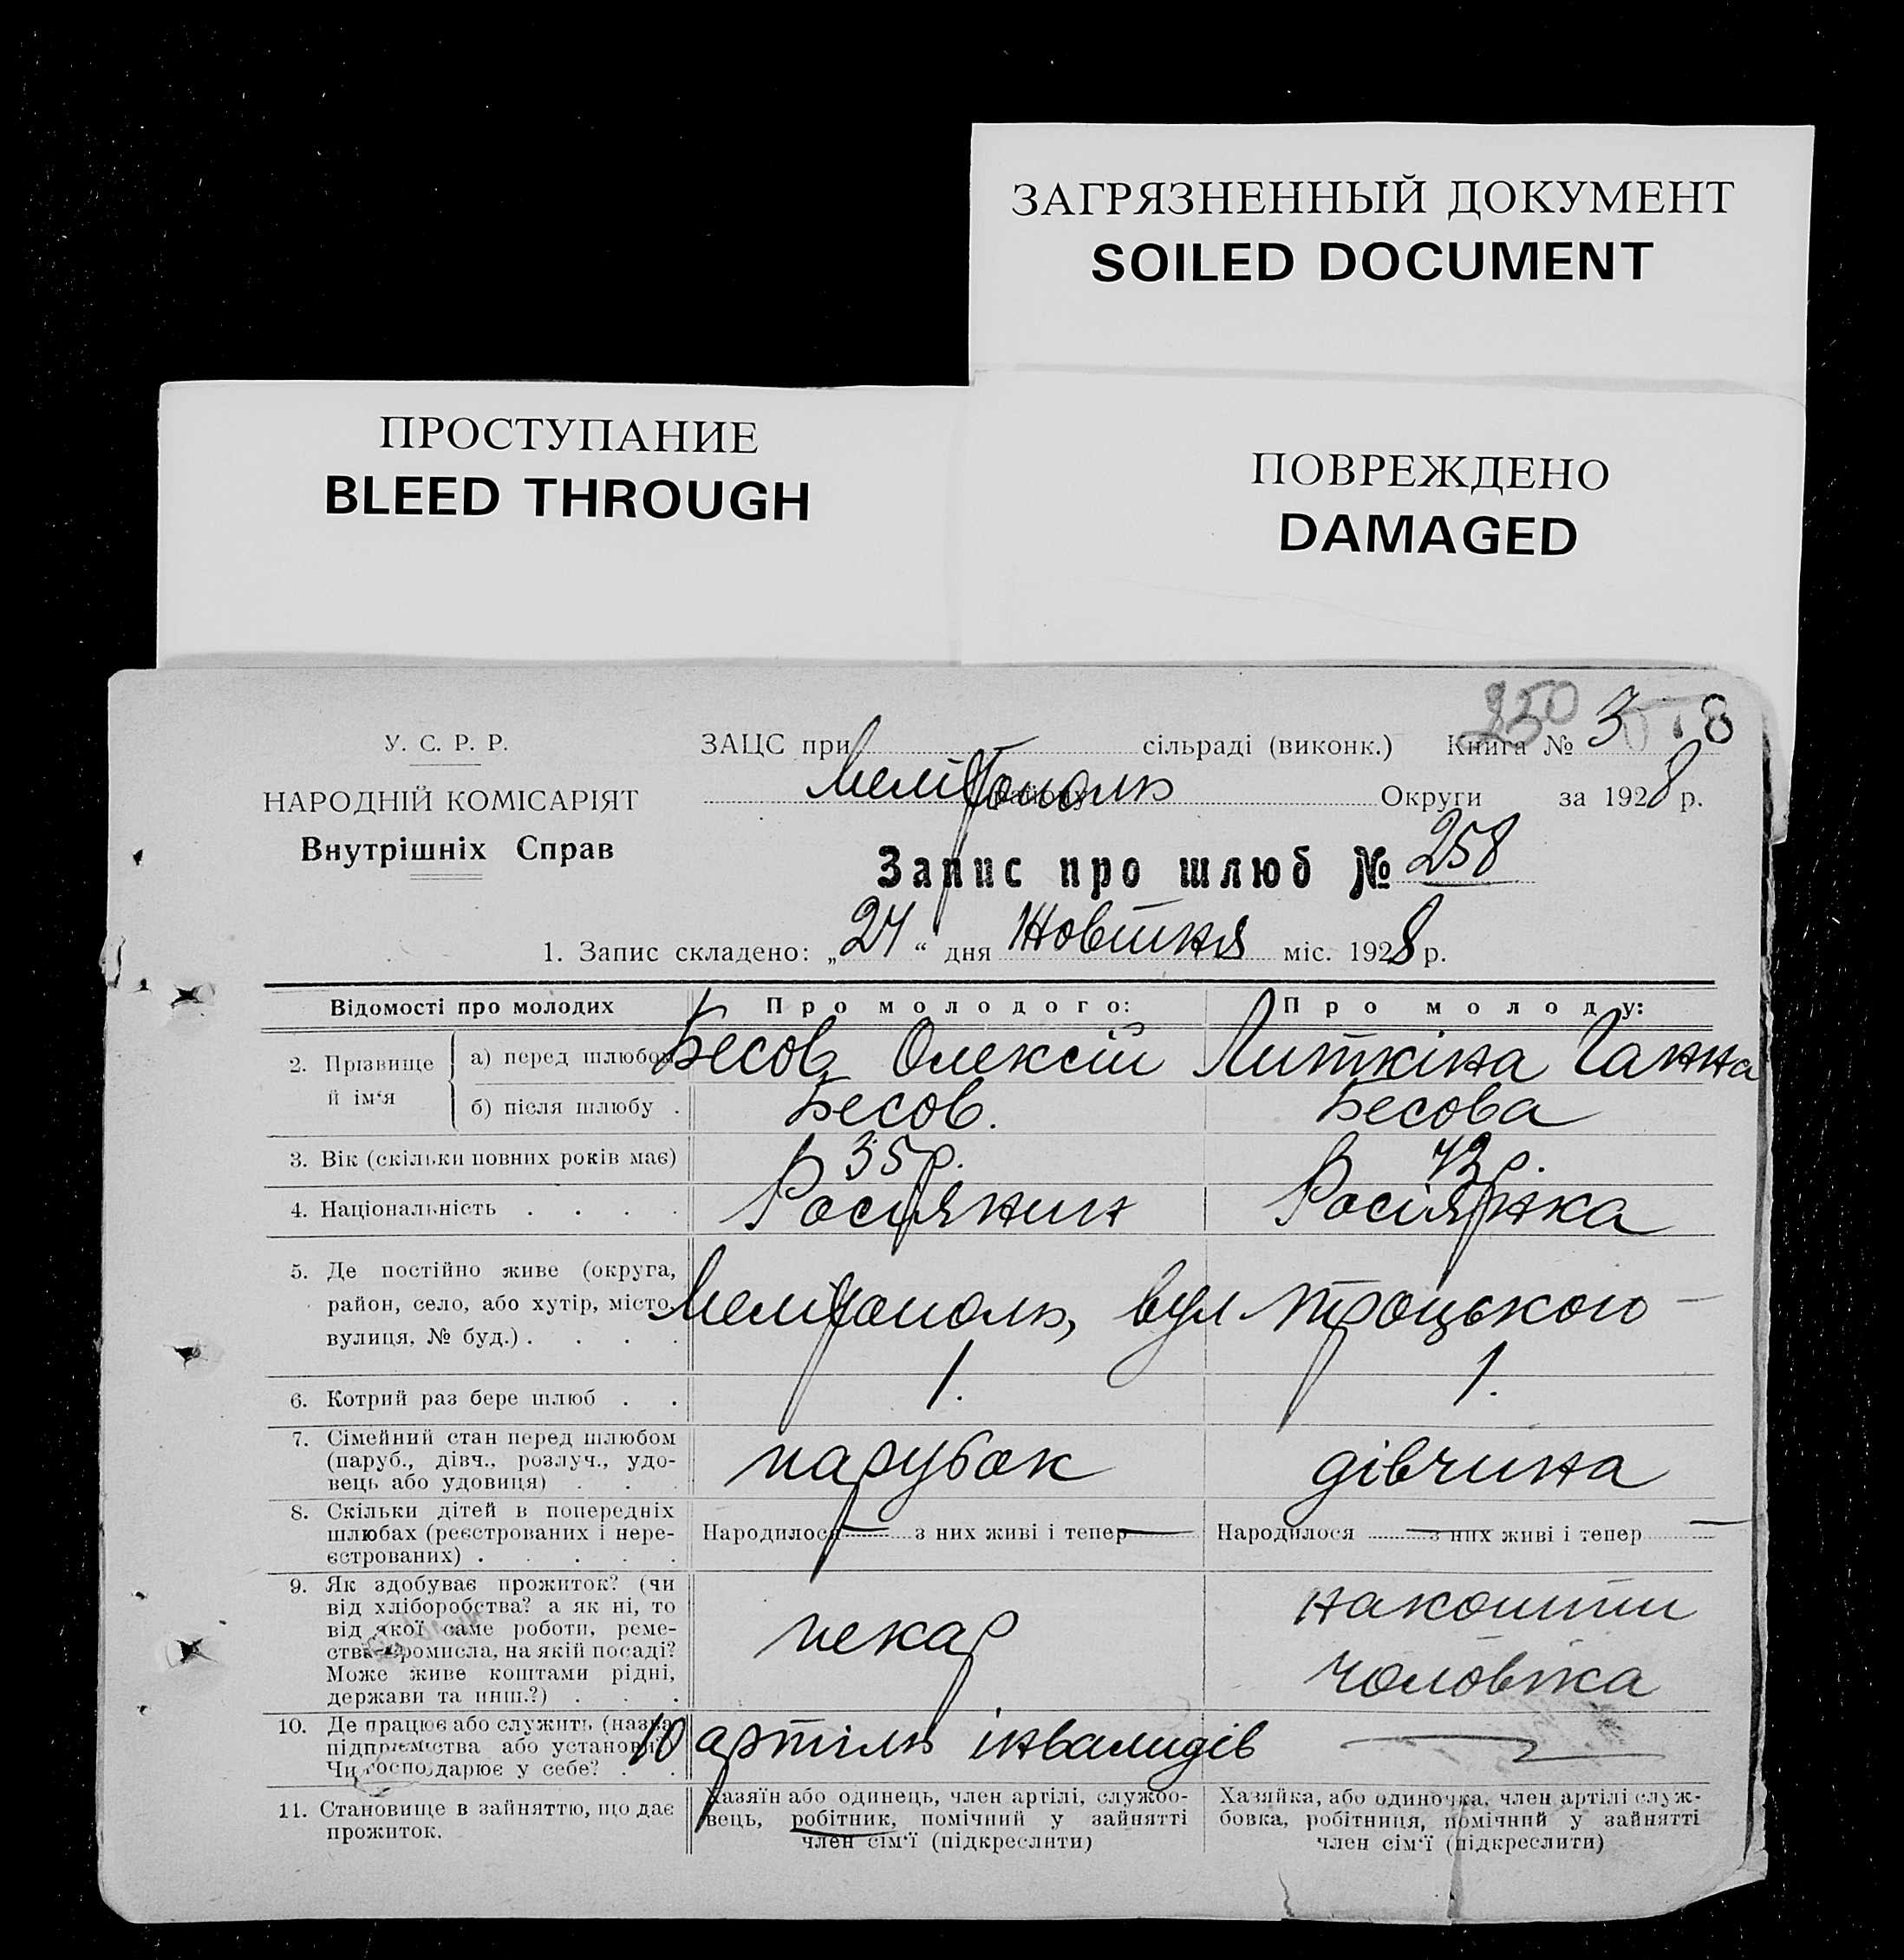 ЗАГРЯЗНЕННЫЙ ДОКУМЕНТ
SOILED DOCUMENT
ПРОСТУПАНИЕ
BLEED THROUGH
ПОВРЕЖДЕНО
DAMAGED
250
У. С. Р. Р.
НАРОДНІЙ КОМІСАРІЯТ
Внутрішніх Справ
ЗАЦС при сільраді (виконк.) Книга № 3
Мелітополь Округи за 1928 р.
Запис про шлюб № 258
1. Запис складено: „24“ дня Жовтня міс. 1928 р.
Відомості про молодих Про молодого: Про молоду:
2. Прізвище й ім‘я а) перед шлюбом Бесов Олексій Литкіна Ганна
б) після шлюбу . Бесов. Бесова
3. Вік (скільки повних років має) 35 р. р.
4. Національність . . . . Росіянин Росіянка
5. Де постійно живе (округа,
район, село, або хутір, місто,
вулиця, № буд.) . . . . Мелітополь, вул Троцького
6. Котрий раз бере шлюб . . 1. 1.
7. Сімейний стан перед шлюбом
(паруб., дівч., розлуч., удо-
вець або удовиця) . . . парубок дівчина
8. Скільки дітей в попередніх
шлюбах (реєстрованих і нере-
єстрованих) . . . . . Народилося — з них живі і тепер — Народилося — з них живі і тепер —
9. Як здобуває прожиток? (чи
від хліборобства? а як ні, то
від якої саме роботи, реме-
ства-промисла, на якій посаді?
Може живе коштами рідні,
держави та инш.?) . . . пекар на кошти
чоловіка
10. Де працює або служить (назва
підприємства або установи)?
Чи господарює у себе? . . артіль інвалидів —
11. Становище в зайняттю, що дає
прожиток.
Хазяїн або одинець, член артілі, службо-
вець, робітник, помічний у зайнятті
член сім‘ї (підкреслити)
Хазяйка, або одиночка, член артілі служ-
бовка, робітниця, помічний у зайнятті
член сім‘ї (підкреслити)